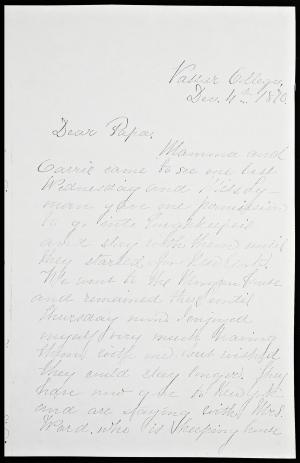 Vassar College,
Dec. 4th 1870.
Dear Papa,
Mamma and
Carrie came to see me last
Wednesday and
gave me permission
to go into Poughkeepsie
and stay with them until
they started for New York.
We went to the House
and remained there until
Thursday noon I enjoyed
myself very much having
them with me and wished
they could stay longer. They
have now gone to New York
and are staying with Mrs.
Ward, who is keeping house